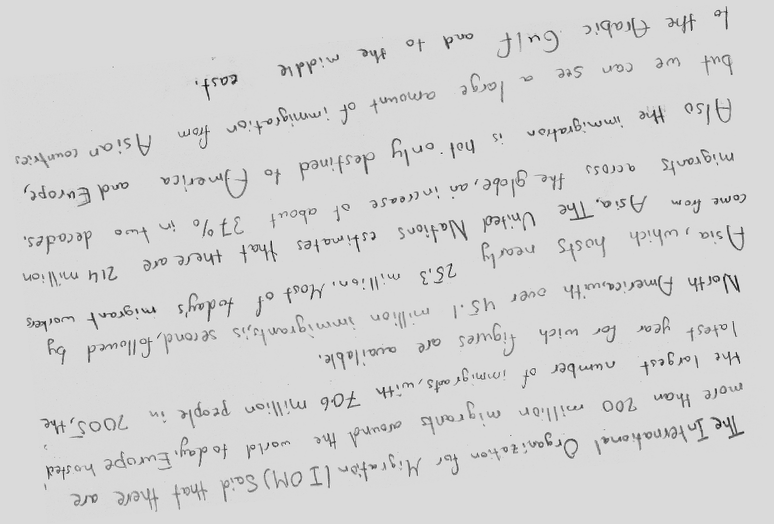 The International Organization for Migration (IOM) Said that there are
more than 200 million migrants around the world today. Europe hosted
the largest number of immigrants, with 70.6 million people in 2005, the
latest year for wich figures are available.
North America, with over 45.1 million immigrants, is, second, followed by
Asia, which hosts nearly 25.3 million. Most of today's migrant workers
come from Asia. The United Nations estimates that there are 214 million
migrants across the globe, an increase of about 37% in two decades.
Also the immigration is not only destined to America and Europe,
but we can see a large amount of immigration from Asian countries
to the Arabic Gulf and to the middle east.